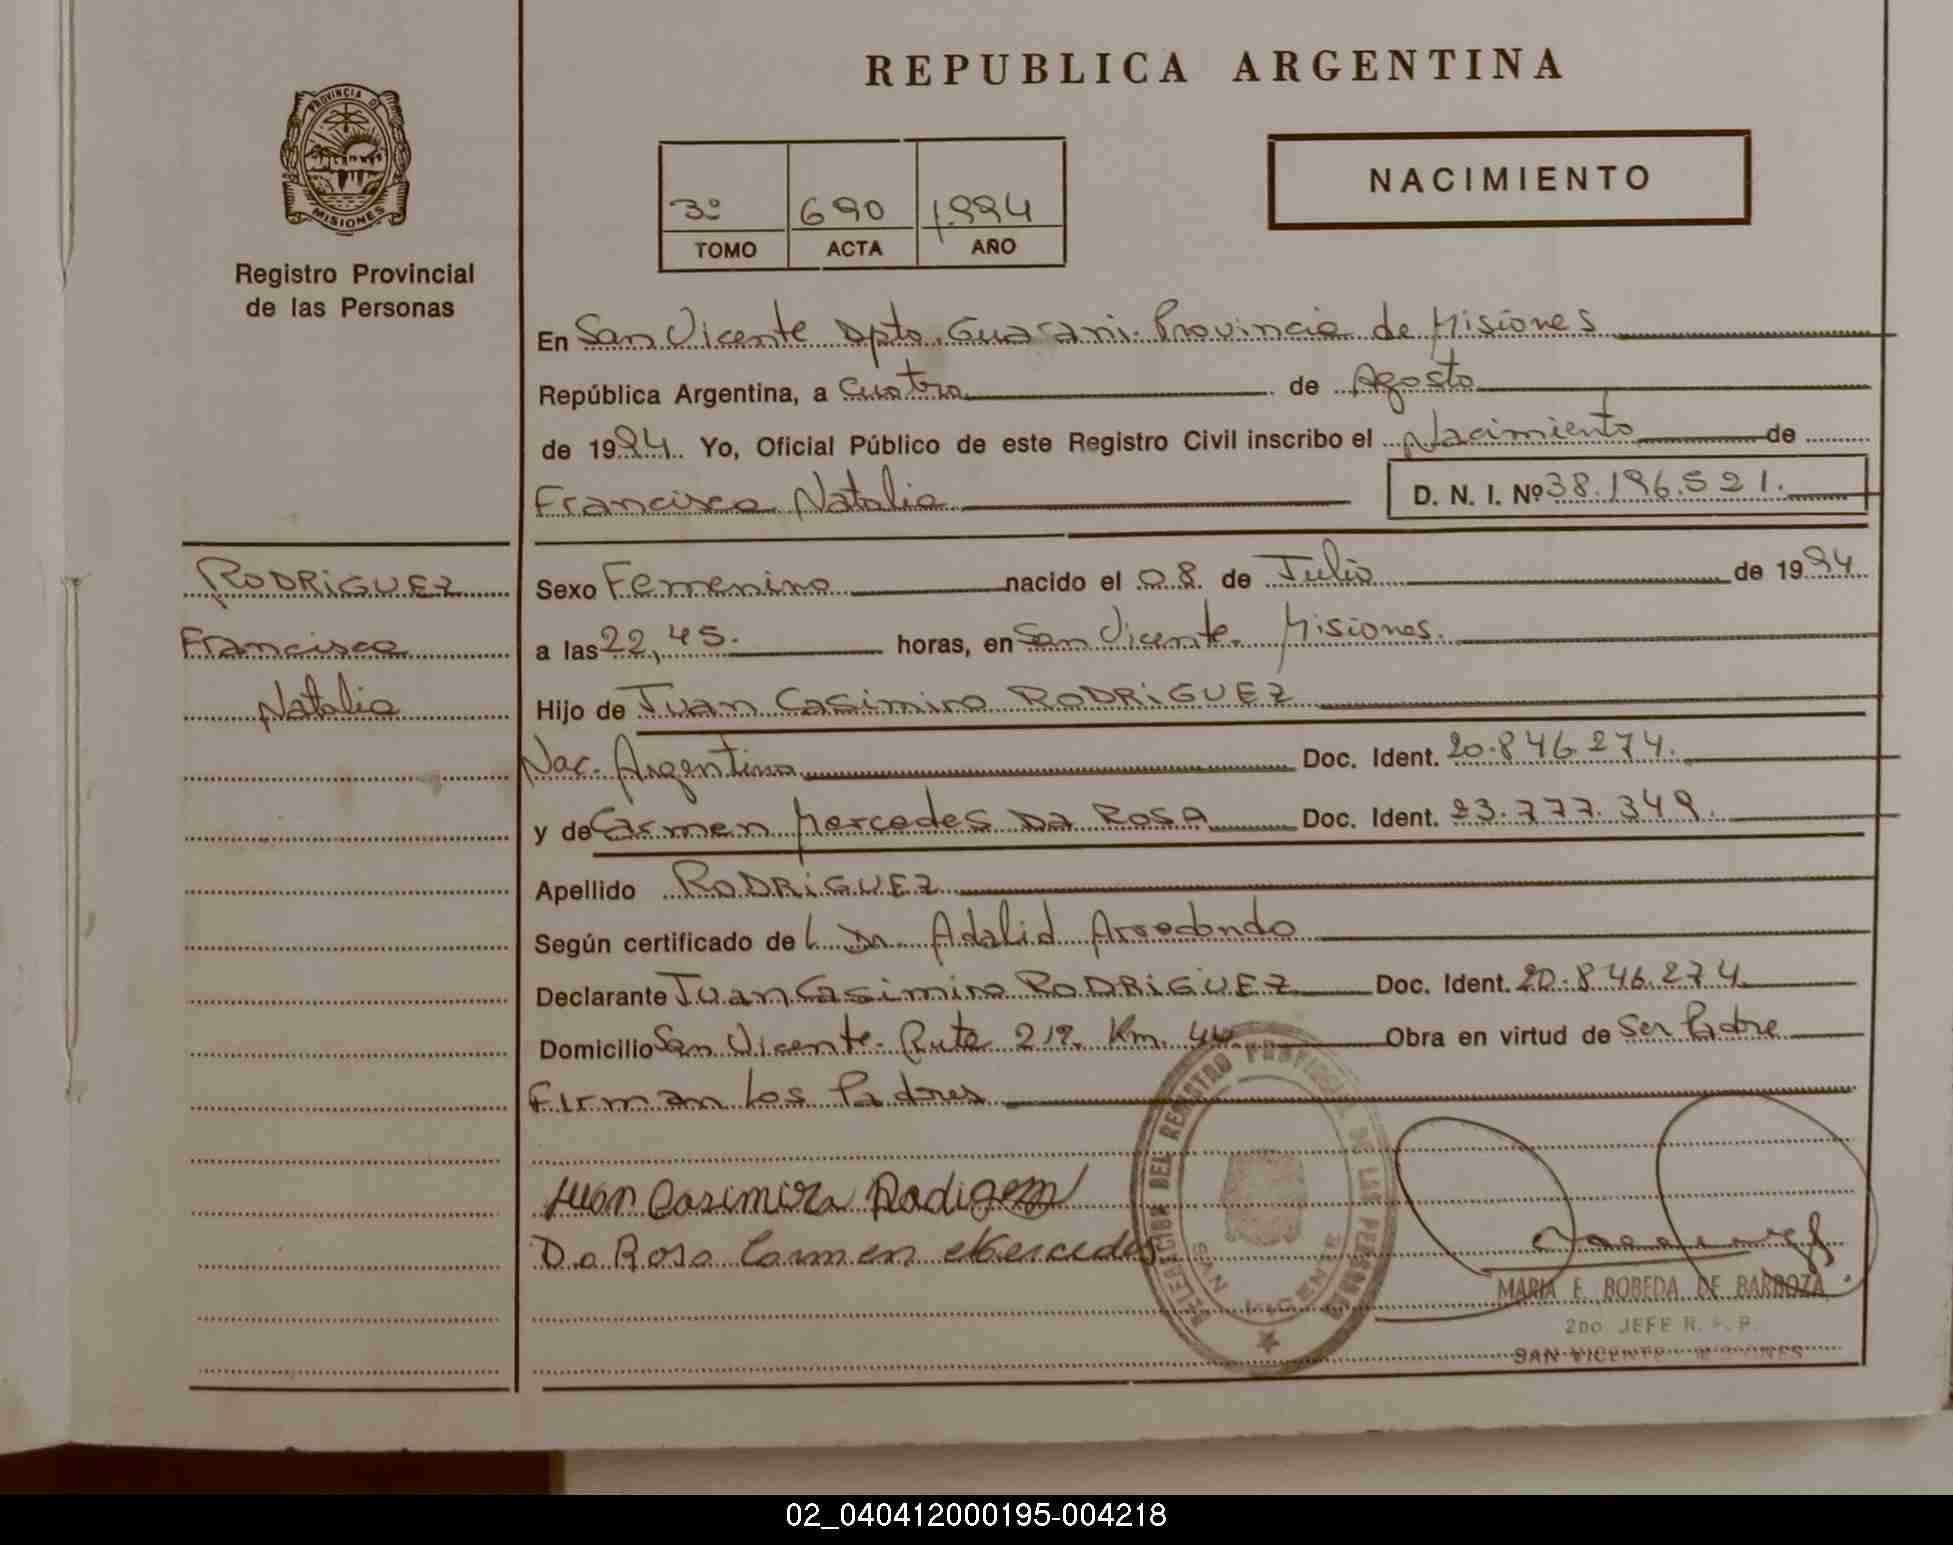 REPUBLICA ARGENTINA
PROVINCIA DE
MISIONES
Registro Provincial
de las Personas
3º 690 1994
TOMO ACTA AÑO
NACIMIENTO
En San Vicente Dpto. Guarani. Provincia de Misiones
República Argentina, a cuatro de Agosto
de 1994. Yo, Oficial Público de este Registro Civil inscribo el Nacimiento de
Francisca Natalia D. N. I. Nº 38.196.521.
RODRiGUEZ
Francisca
Natalia
Sexo Femenino nacido el 08 de Julio de 1994
a las 22,45. horas, en San Vicente. Misiones.
Hijo de Juan Casimiro RODRiGUEZ
Nac. Argentina Doc. Ident. 20.846.274.
y de Carmen Mercedes DA ROSA Doc. Ident. 23.777.349.
Apellido RODRiGUEZ
Según certificado de l Dr. Adalid Arredondo
Declarante Juan Casimiro RODRiGUEZ Doc. Ident. 20.846.274
Domicilio San Vicente. Ruta 212. Km. 40. Obra en virtud de Ser Padre
Firman Los Padres
Juan Casimiro
Da Rosa Carmen Mercedes
DELEGACION DEL REGISTRO PROVINCIAL DE LAS PERSONAS
SAN VICENTE
MARIA E. BOBEDA DE BARBOZA
2DO JEFE R. P. P.
SAN VICENTE MISIONES
02_040412000195-004218